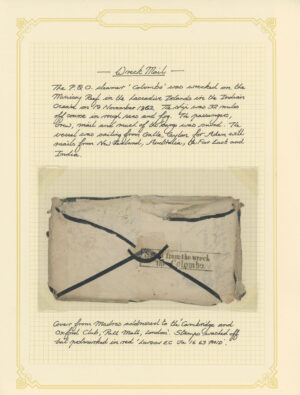 Wreck Mail
The P.& O. steamer 'Colombo' was wrecked on the
Minicoy Reef in the Laccadive Islands in the Indian
Ocean on 19 November 1862. The ship was 32 miles
off course in rough seas and fog. The passengers,
crew, mail and much of the cargo was saved. The
vessel was sailing from Galle, Ceylon for Aden with
mails from New Zealand, Australia, the Far East and
India.
from the wreck
Colombo.
Cover from Madras addressed to the 'Cambridge and
Oxford Club, Pall Mall, London'. Stamps washed off
but postmarked in red 'London EC Ja 16 63 PAID'.